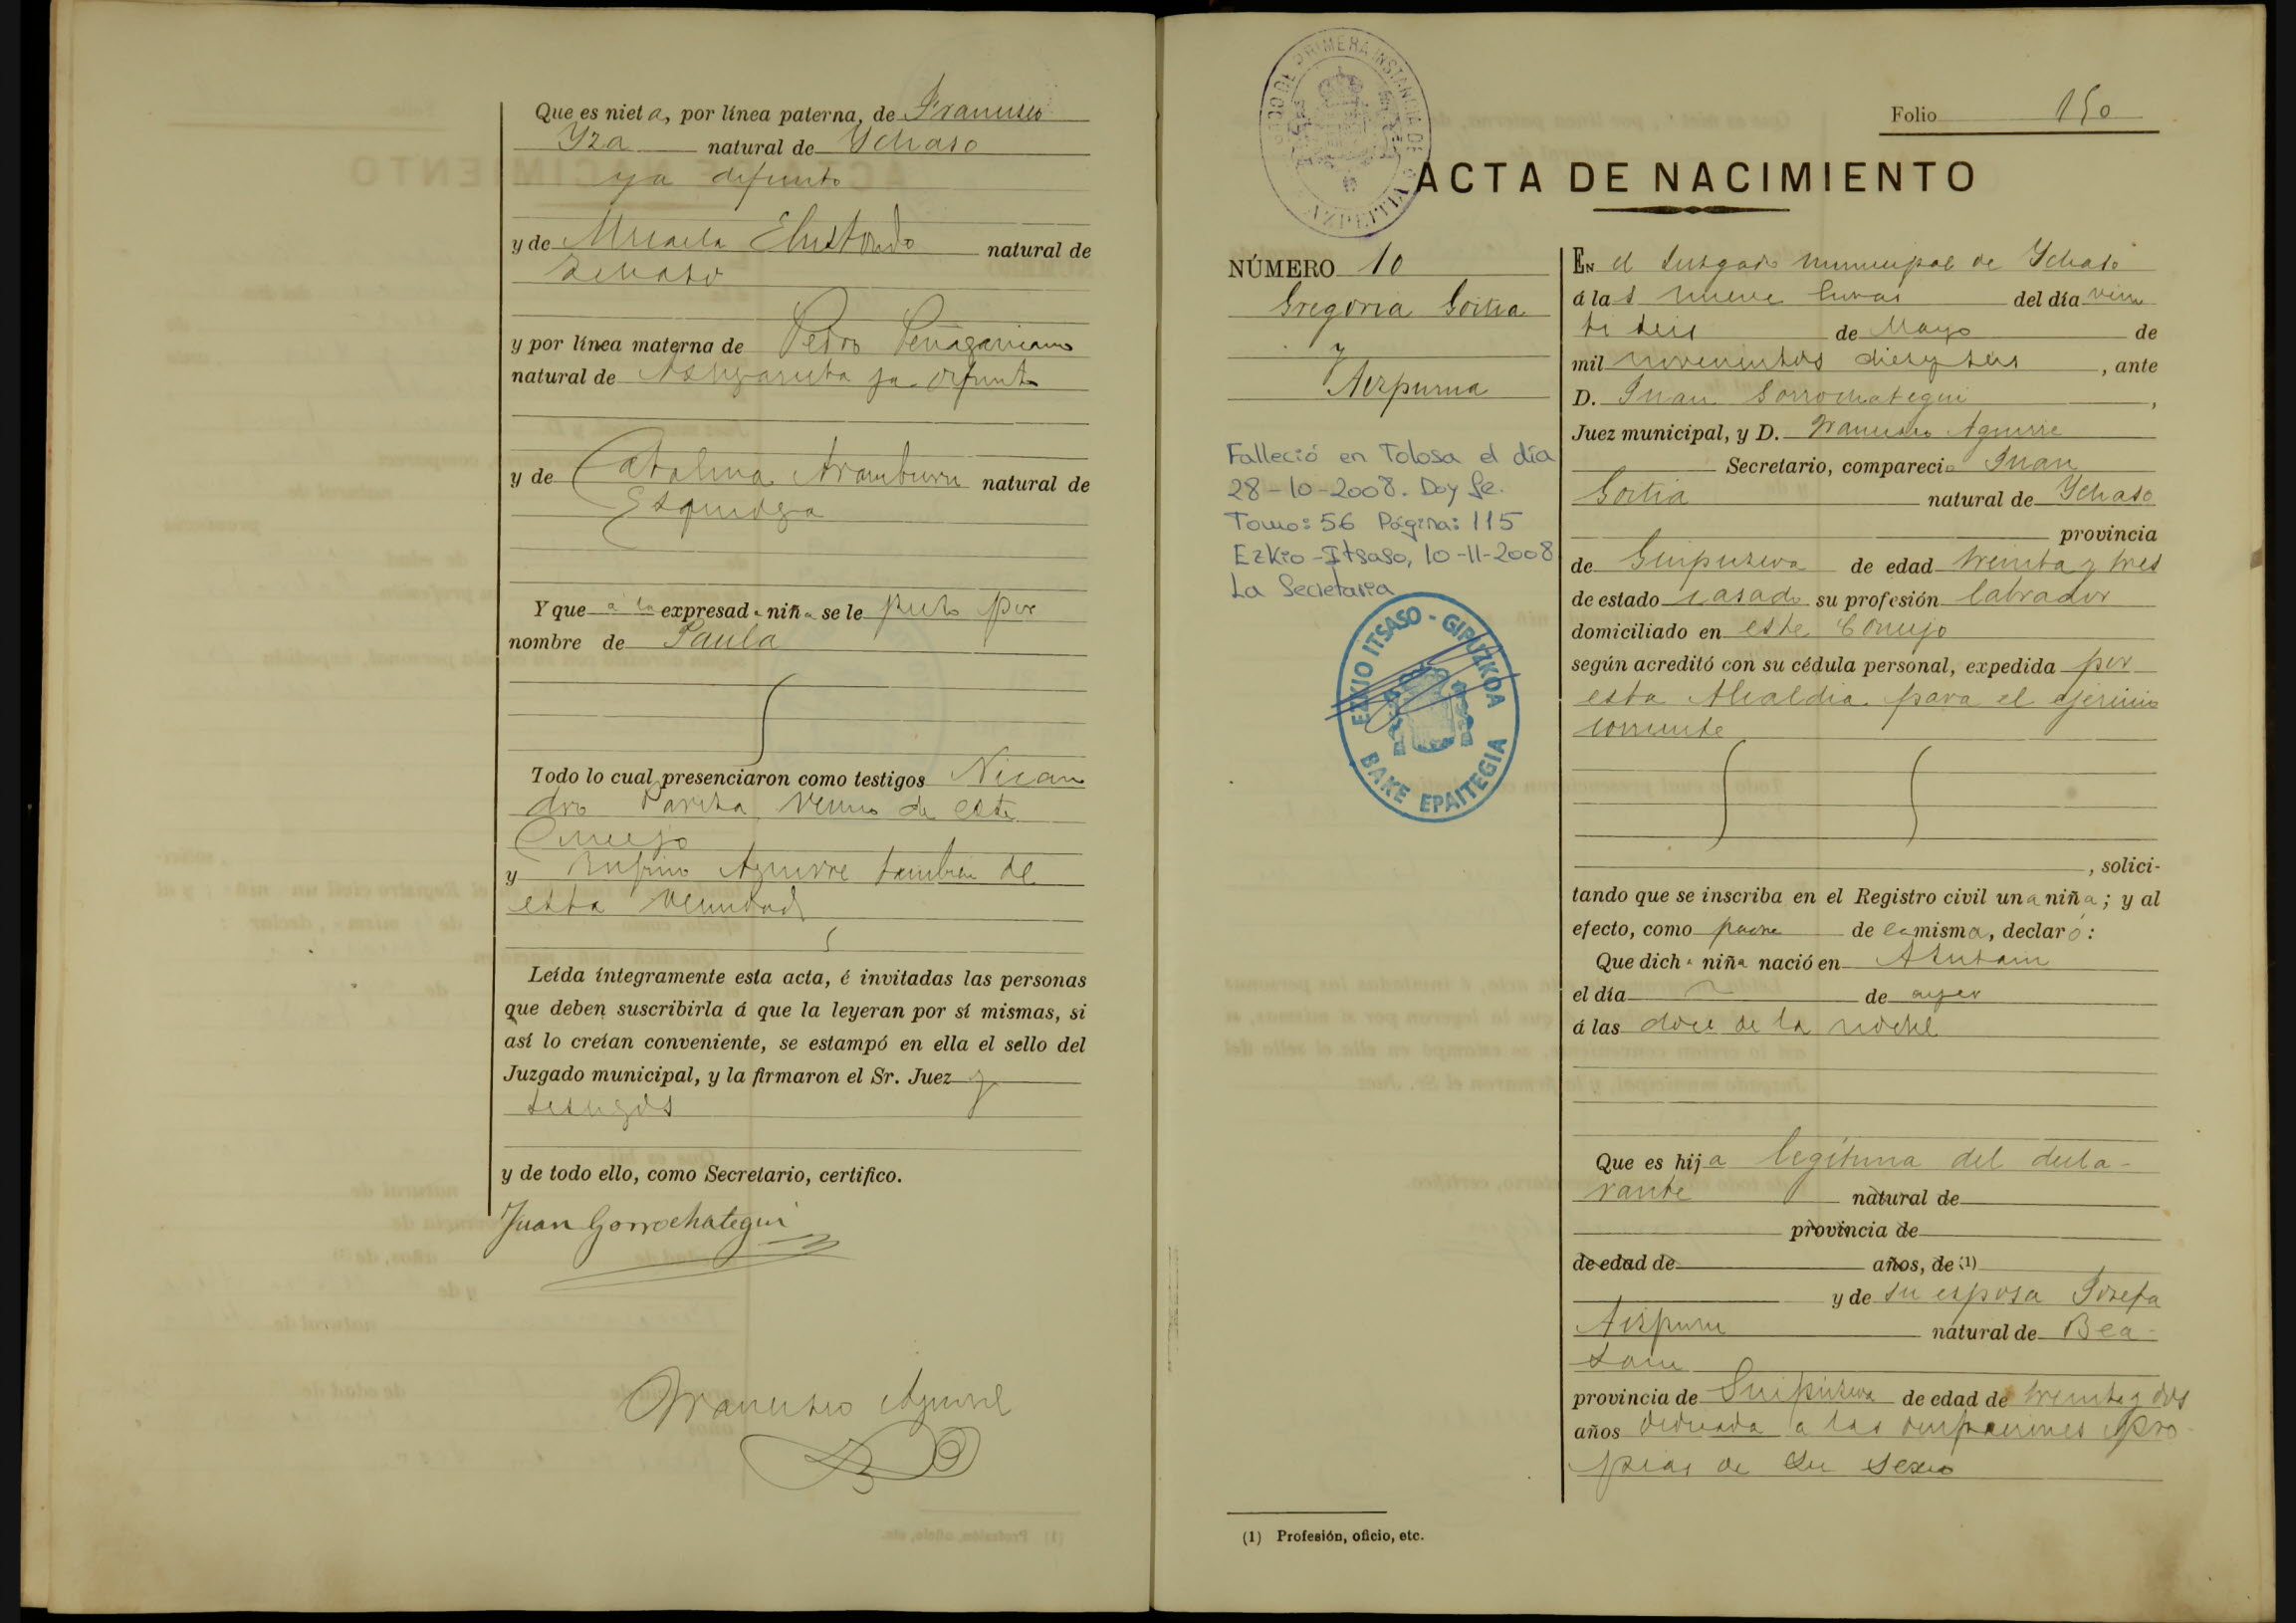 Que es nieta, por línea paterna, de Francisco
Yza natural de Ychaso
ya difunto
y de Micaela Elustondo natural de
Ychaso
y por línea materna de Pedro Peñagaricano
natural de Astigarreta ya difunto
y de Catalina Aramburu natural de
Esquioga
Y que a la expresada niña se le puso por
nombre de Paula
Todo lo cual presenciaron como testigos Nican
dro vecino de este
Concejo
y Rufino Aguirre tambien de
esta vecindad
Leída íntegramente esta acta, é invitadas las personas
que deben suscribirla á que la leyeran por sí mismas, si
así lo creían conveniente, se estampó en ella el sello del
Juzgado municipal, y la firmaron el Sr. Juez y
testigos
y de todo ello, como Secretario, certifico.
Juan Gorrochategui
Francisco Aguirre
JUZGADO DE PRIMERA INSTANCIA DE AZPEITIA
Folio 150
ACTA DE NACIMIENTO
NÚMERO 10
Gregoria Goitia
y
Aizpurua
Falleció en Tolosa el día
28-10-2008. Doy fe.
Tomo: 56 Página: 115
Ezkio-Itsaso, 10-11-2008
La Secretaria
EZKIO ITSASO - GIPUZKOA
BAKE EPAITEGIA
EN el Juzgado municipal de Ychaso
á las nueve horas del día vein
ti seis de Mayo de
mil novecientos diez y seis, ante
D. Juan Gorrochategui,
Juez municipal, y D. Francisco Aguirre
Secretario, compareció Juan
Goitia natural de Ychaso
provincia
de Guipuzcoa de edad treinta y tres
de estado casado su profesión labrador
domiciliado en este Concejo
según acreditó con su cédula personal, expedida por
esta Alcaldia para el ejercicio
corriente
, solici-
tando que se inscriba en el Registro civil una niña; y al
efecto, como padre de la misma, declaró:
Que dicha niña nació en
el día de ayer
á las doce de la noche
Que es hija legítima del decla-
rante natural de
provincia de
de edad de años, de (1)
y de su esposa Josefa
Aizpuru natural de Bea-
sain
provincia de Guipuzcoa de edad de treinta y dos
años dedicada a las ocupaciones pro
pias de su sexo
(1) Profesión, oficio, etc.